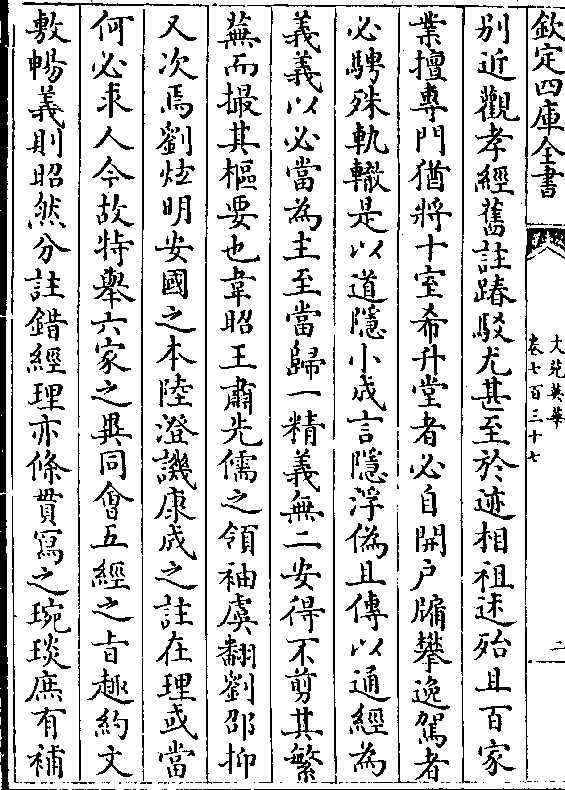 欽定四庫全書
文苑英華
卷七百三十七
二
別近觀孝經舊註踳駁尤甚至於迹相祖述殆且百家
業擅專門猶將十室希升堂者必自開戸牖攀逸駕者
必騁殊軌轍是以道隱小成言隱浮偽且傳以通經為
義義以必當為主至當歸一精義無二安得不剪其繁
蕪而撮其樞要也韋昭王肅先儒之領袖虞翻劉邵抑
又次焉劉炫明安國之本陸澄譏康成之註在理或當
何必求人今故特舉六家之異同會五經之旨趣約文
敷暢義則昭然分註錯經理亦條貫寫之琬琰庶有補